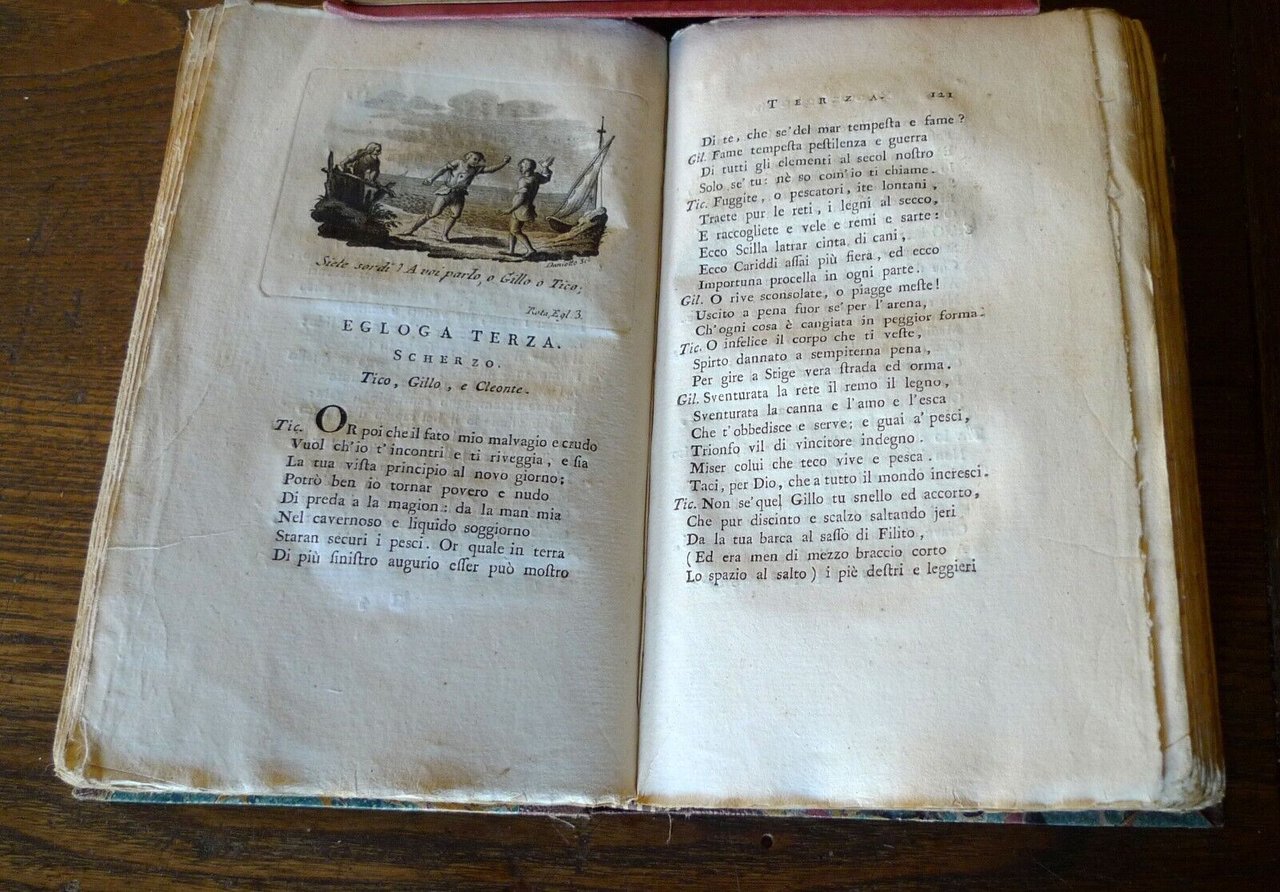 Siete sordi? A voi parlo, o Gillo o Tico;
Rota, Egl. 3.
EGLOGA TERZA.
SCHERZO.
Tico, Gillo, e Cleonte.
Tic. OR poi che il fato mio malvagio e crudo
Vuol ch'io t'incontri e ti riveggia, e ſia
La tua viſta principio al novo giorno;
Potrò ben io tornar povero e nudo
Di preda a la magion: da la man mia
Nel cavernoso e liquido soggiorno
Staran securi i pesci. Or quale in terra
Di più ſiniſtro augurio eſſer può moſtro
TERZA. 121
Di te, che se' del mar tempeſta e fame?
Gil. Fame tempeſta peſtilenza e guerra
Di tutti gli elementi al secol noſtro
Solo se' tu: nè so com'io ti chiame.
Tic. Fuggite, o pescatori, ite lontani,
Traete pur le reti, i legni al secco,
E raccogliete e vele e remi e sarte:
Ecco Scilla latrar cinta di cani,
Ecco Cariddi aſſai più fiera, ed ecco
Importuna procella in ogni parte.
Gil. O rive sconsolate, o piagge meſte!
Uscito a pena fuor se' per l'arena,
Ch'ogni cosa è cangiata in peggior forma.
Tic. O infelice il corpo che ti veſte,
Spirto dannato a sempiterna pena,
Per gire a Stige vera ſtrada ed orma.
Gil. Sventurata la rete il remo il legno,
Sventurata la canna e l'amo e l'esca
Che t'obbedisce e serve; e guai a' pesci,
Trionfo vil di vincitore indegno.
Miser colui che teco vive e pesca.
Taci, per Dio, che a tutto il mondo incresci.
Tic. Non se' quel Gillo tu snello ed accorto,
Che pur discinto e scalzo saltando jeri
Da la tua barca al saſſo di Filito,
(Ed era men di mezzo braccio corto
Lo spazio al salto) i piè deſtri e leggieri